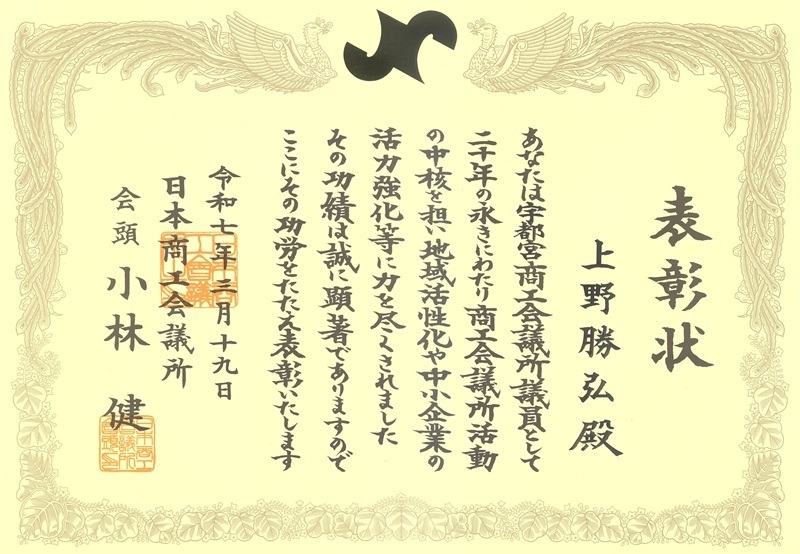 表彰状
上野勝弘殿
あなたは宇都宮商工会議所議員として
二十年の永きにわたり商工会議所活動
の中核を担い地域活性化や中小企業の
活力強化等に力を尽くされました
その功績は誠に顕著でありますので
ここにその功労をたたえ表彰いたします
令和七年三月十九日
日本商工会議所
会頭 小林 健